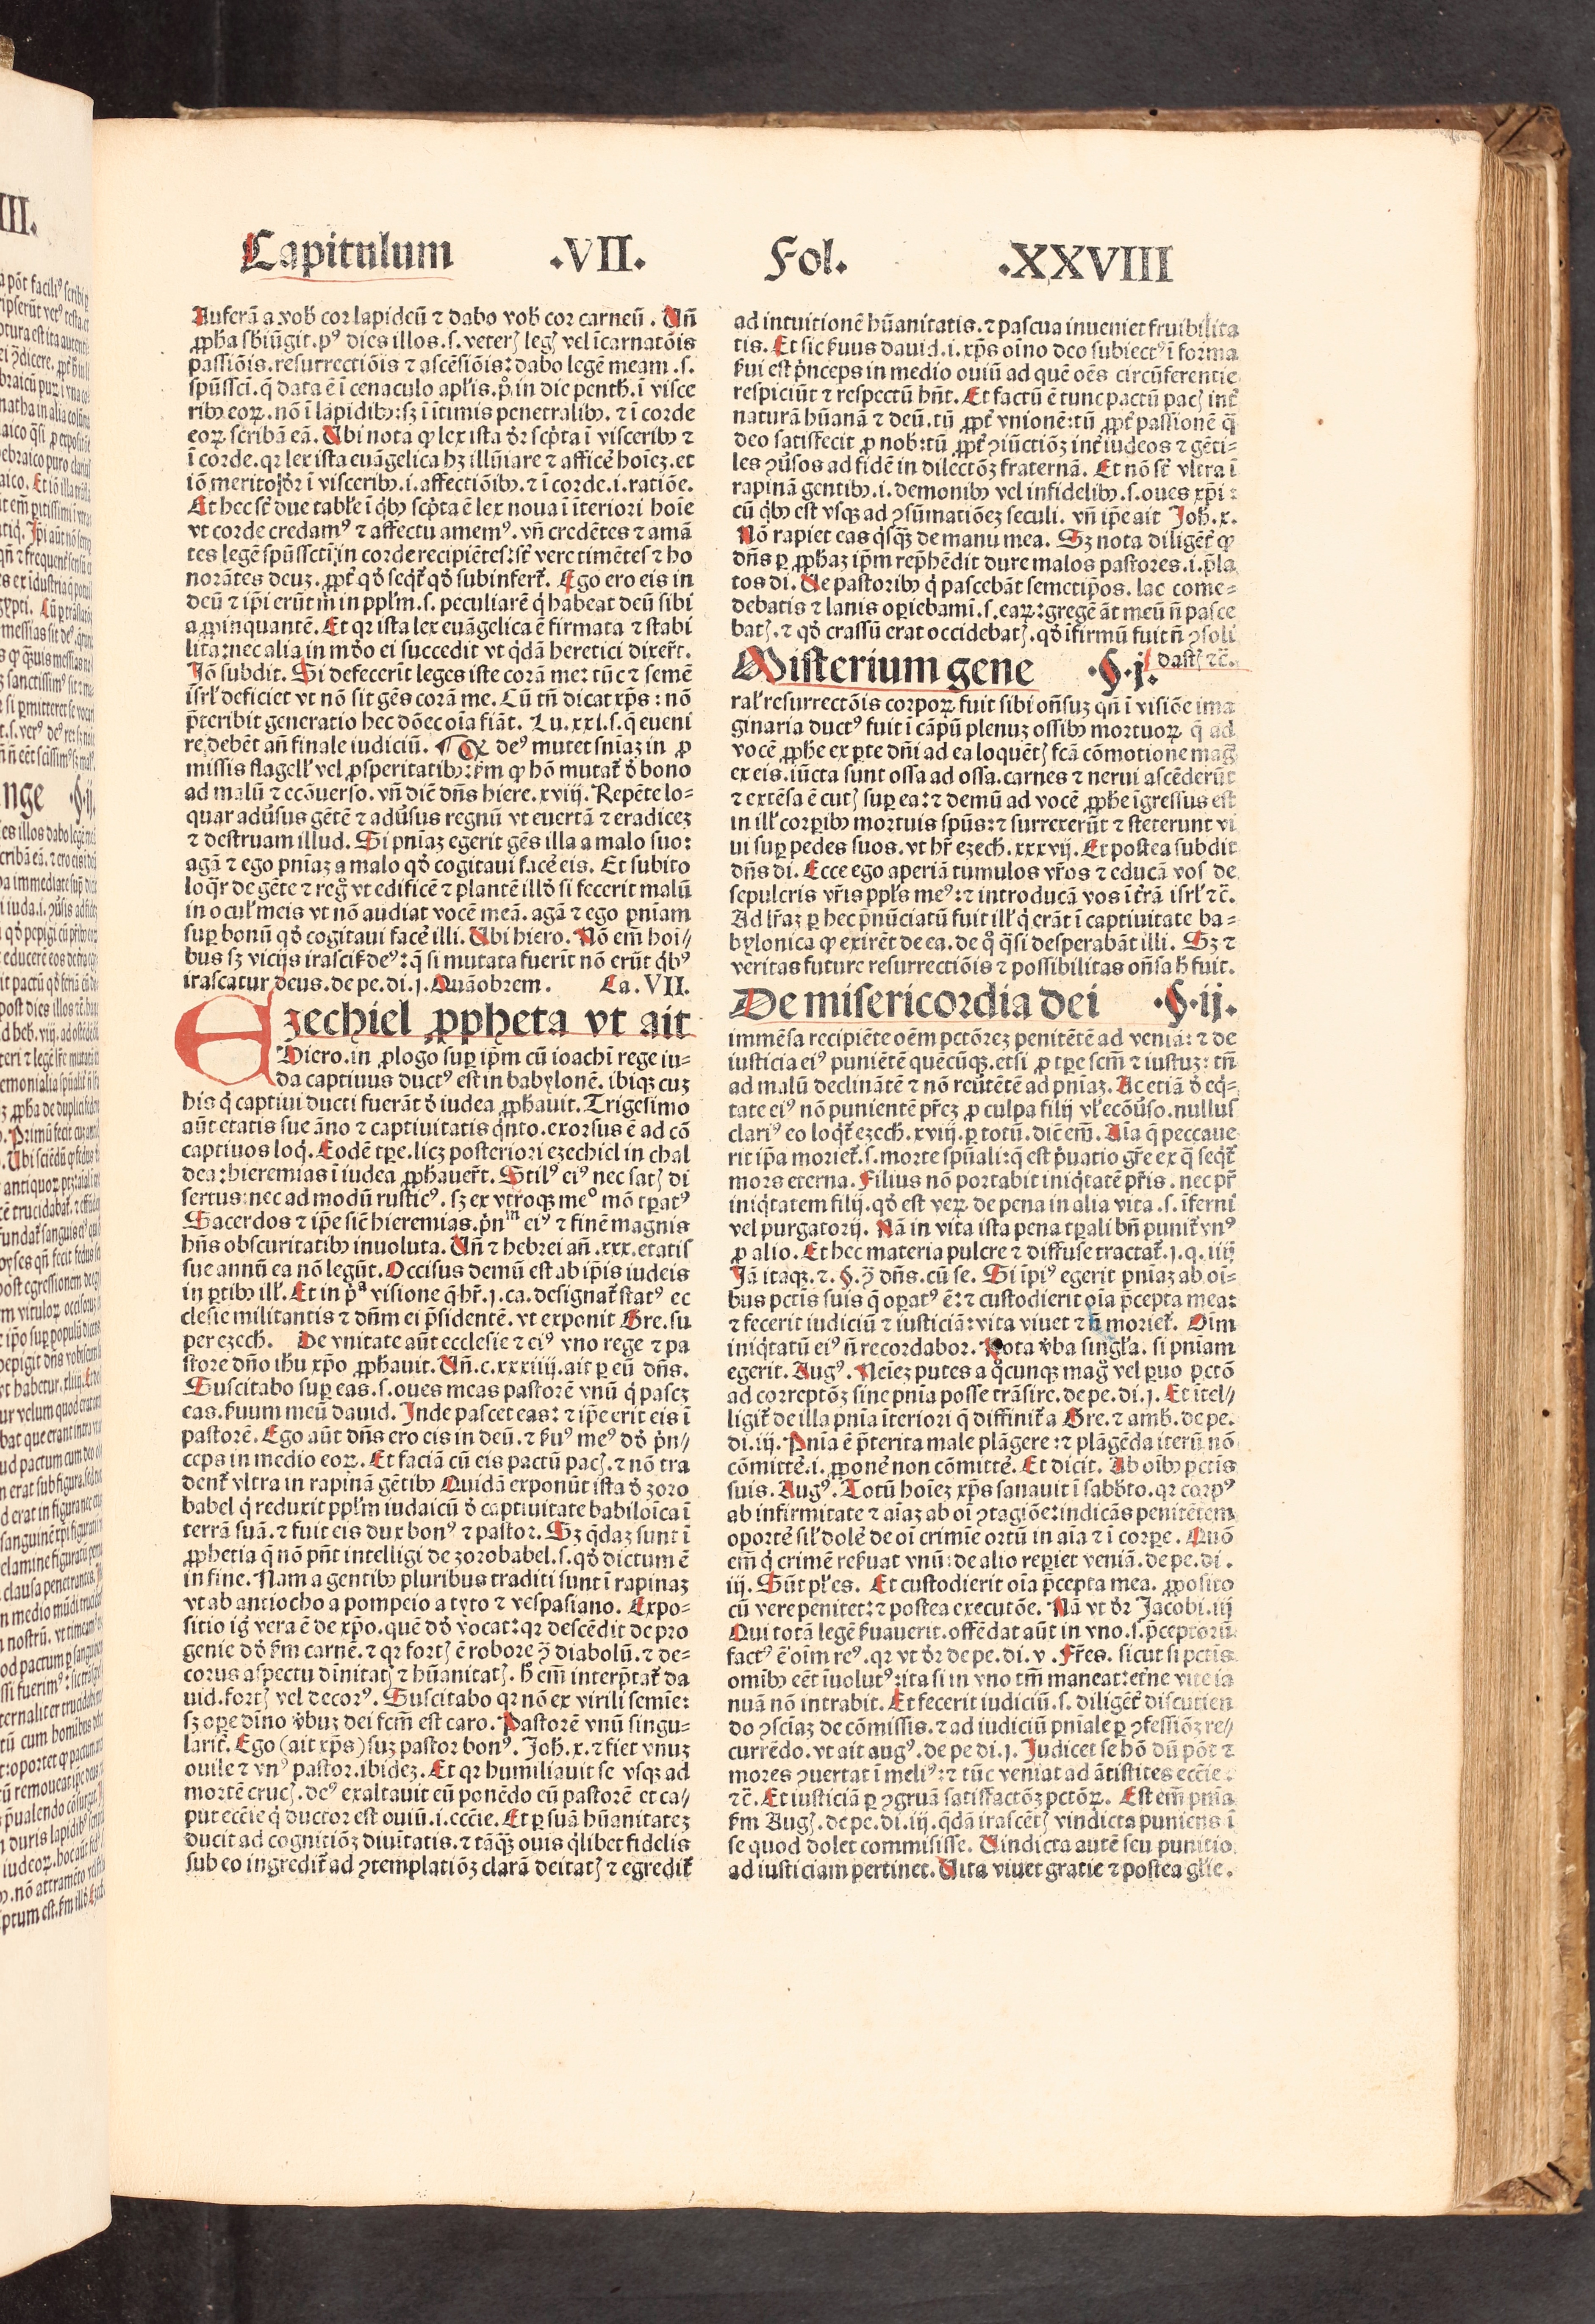 Capitulum .VII. Fol. .XXVIII
Auferā a vob̄ cor lapideū ⁊ dabo vob̄ cor carneū. Un̄
ꝓph̄a sb̄iūgit. pꝰ dies illos .s. veteris legis vel īcarnatōis
passiōis. resurrectiōis ⁊ ascēsiōis: dabo legē meam .s.
spūssci. q̄ data ē ī cenaculo apl̄is. p̄ in die penth̄. ī visce
ribꝰ eoꝝ. nō ī lapidibꝰ: sꝫ ī itimis penetralibꝰ. ⁊ ī corde
eoꝝ scribā eā. Ubi nota ꝙ lex ista dr̄ scp̄ta ī visceribꝰ ⁊
ī corde. qꝛ lex ista euāgelica hꝫ illūiare ⁊ afficē hoīeꝫ. et
iō merito dr̄ ī visceribꝰ .i. affectiōibꝰ. ⁊ ī corde .i. ratiōe.
Et hec st̄ due tabl̄e ī qͥbꝰ scp̄ta ē lex noua ī īteriori hoīe
vt corde credamꝰ ⁊ affectu amemꝰ. vn̄ credētes ⁊ amā
tes legē spūssctī in corde recipiētes: st̄ vere timētes ⁊ ho
norātes deuꝫ. ꝓpt̄ qđ seqt̄ qđ subinfert̄. Ego ero eis in
deū ⁊ ip̄i erūt m̄ in ppl̄m .s. peculiarē qͥ habeat deū sibi
aꝓpinquantē. Et qꝛ ista lex euāgelica ē firmata ⁊ stabi
lita: nec alia in mōdo ei succedit vt qͥdā heretici dixer̄t.
Iō subdit. Si defecerīt leges iste corā me: tūc ⁊ semē
isrl̄ deficiet vt nō sit gēs corā me. Cū tn̄ dicat xp̄s: nō
p̄teribit generatio hec dōec oīa fiāt. Lu. xxi. s. q̄ eueni
re debēt an̄ finale iudiciū. ¶ Qꝛ deꝰ mutet sn̄iaꝫ in ꝓ
missis flagell̄ vel ꝓsperitatibꝰ: km̄ ꝙ hō mutat̄ đ bono
ad malū ⁊ ecōuerso. vn̄ diē dn̄s hiere. xviij. Repēte lo-
quar adūsus gētē ⁊ adūsus regnū vt euertā ⁊ eradiceꝫ
⁊ destruam illud. Si pn̄iaꝫ egerit gēs illa a malo suo:
agā ⁊ ego pn̄iaꝫ a malo qđ cogitaui facē eis. Et subito
loqr̄ de gēte ⁊ regͦ vt edificē ⁊ plantē illđ si fecerit malū
in ocul̄ meis vt nō audiat vocē meā. agā ⁊ ego pn̄iam
suꝑ bonū qđ cogitaui facē illi. Ubi hiero. Nō em̄ hoi//
bus sꝫ vicijs irascit̄ deꝰ: q̄ si mutata fuerīt nō erūt qͥbꝰ
irascatur deus. de pe. di. j. Quāobrem. Ca. VII.
Ezechiel ꝓpheta vt ait
Hiero. in ꝓlogo suꝑ ip̄m cū ioachī rege iu-
da captiuus ductꝰ est in babylonē. ibiqꝫ cuꝫ
his qͥ captiui ducti fuerāt đ iudea ꝓph̄auit. Trigesimo
aūt etatis sue āno ⁊ captiuitatis qͥnto. exorsus ē ad cō
captiuos loqͥ. Eodē tꝑe. licꝫ posteriori ezechiel in chal
dea: hieremias ī iudea ꝓph̄auer̄t. Stilꝰ eiꝰ nec satis di
sertus: nec ad modū rusticꝰ. sꝫ ex vtroqꝫ meͦ mō tꝑatꝰ
Sacerdos ⁊ ip̄e sic̄ hieremias. pͥn^m eiꝰ ⁊ finē magnis
hn̄s obscuritatibꝰ inuoluta. Un̄ ⁊ hebrei an̄ .xxx. etatis
sue annū ea nō legūt. Occisus demū est ab ip̄is iudeis
in ꝑtibꝰ ill̄. Et in pͣ visione q̄ hr̄. j. ca. designat̄ statꝰ ec
clesie militantis ⁊ dn̄m ei p̄sidentē. vt exponit Gre. su
per ezech̄. De vnitate aūt ecclesie ⁊ eiꝰ vno rege ⁊ pa
store dn̄o ih̄u xp̄o ꝓph̄auit. Un̄ .c. xxxiiij. ait ꝑ eū dn̄s.
Suscitabo suꝑ eas .s. oues meas pastorē vnū qͥ pascꝫ
eas. ẜuum meū dauid. Inde pascet eas: ⁊ ip̄e erit eis ī
pastorē. Ego aūt dn̄s ero eis in deū. ⁊ ẜuꝰ meꝰ dđ pͥn//
ceps in medio eoꝝ. Et faciā cū eis pactū pacis. ⁊ nō tra
dent̄ vltra in rapinā gētibꝰ Quidā exponūt ista đ zoro
babel qͥ reduxit ppl̄m iudaicū đ captiuitate babiloīca ī
terrā suā. ⁊ fuit eis dux bonꝰ ⁊ pastor. Sꝫ qͥdaꝫ sunt ī
ꝓphetia q̄ nō pn̄t intelligi de zorobabel .s. qđ dictum ē
in fine. Nam a gentibꝰ pluribus traditi sunt ī rapinaꝫ
vt ab antiocho a pompeio a tyto ⁊ vespasiano. Expo-
sitio igͥ vera ē de xp̄o. quē dđ vocat: qꝛ descēdit de pro
genie dđ km̄ carnē. ⁊ qꝛ fortis ē robore ꝯ̄ diabolū. ⁊ de-
corus aspectu dīnitatis ⁊ hūanitatis. h̄ em̄ interp̄tat̄ da
uid. fortis vel decorꝰ. Suscitabo qꝛ nō ex virili semīe:
sꝫ ope dīno v̄buꝫ dei fc̄m est caro. Pastorē vnū singu-
larit̄. Ego (ait xp̄s) suꝫ pastor bonꝰ. Joh̄. x. ⁊ fiet vnuꝫ
ouile ⁊ vnꝰ pastor. ibideꝫ. Et qꝛ humiliauit se vsqꝫ ad
mortē crucis. deꝰ exaltauit eū ponēdo eū pastorē et ca/
put ecc̄ie qͥ ductor est ouiū .i. ecc̄ie. Et ꝑ suā hūanitateꝫ
ducit ad cognitiōꝫ diuītatis. ⁊ tāqꝫ ouis qͥlibet fidelis
sub eo ingredit̄ ad ꝯtemplatiōꝫ clarā deitatis ⁊ egredit̄
ad intuitionē hūanitatis. ⁊ pascua inueniet fruibilita
tis. Et sic ẜuus dauid .i. xp̄s oīno deo subiectꝰ ī forma
ẜui est pͥnceps in medio ouiū ad quē oēs circūferentie
respiciūt ⁊ respectū hn̄t. Et factū ē tunc pactū pacis int̄
naturā hūanā ⁊ deū. tū ꝓpt̄ vnionē: tū ꝓpt̄ passionē q̄
deo satisfecit ꝓ nob̄: tū ꝓpt̄ ꝯiūctiōꝫ int̄ iudeos ⁊ gēti-
les ꝯūsos ad fidē in dilectōꝫ fraternā. Et nō st̄ vltra ī
rapinā gentibꝰ .i. demonibꝰ vel infidelibꝰ .s. oues xp̄i:
cū qͥbꝰ est vsqꝫ ad ꝯsūmatiōeꝫ seculi. vn̄ ip̄e ait Joh̄. x.
Nō rapiet eas qͥsqꝫ de manu mea. Sꝫ nota diligēt̄ ꝙ
dn̄s ꝑ ꝓph̄aꝫ ip̄m rep̄hēdit dure malos pastores .i. p̄la
tos di. Ue pastoribꝰ qͥ pascebāt semetip̄os. lac come-
debatis ⁊ lanis oꝑiebamī .s. eaꝝ: gregē āt meū n̄ pasce
batis. ⁊ qđ crassū erat occidebatis. qđ īfirmū fuit n̄ ꝯsoli
dastis ⁊c̄.
Misterium gene .§.j.
ral̄ resurrectōis corpoꝝ fuit sibi on̄suꝫ qn̄ ī visiōe ima
ginaria ductꝰ fuit ī cāpū plenuꝫ ossibꝰ mortuoꝝ q̄ ad
vocē ꝓph̄e ex ꝑte dn̄i ad ea loquētis fcā cōmotione maḡ
ex eis. iūcta sunt ossa ad ossa. carnes ⁊ nerui ascēderūt
⁊ extēsa ē cutis suꝑ ea: ⁊ demū ad vocē ꝓph̄e īgressus est
in ill̄ corꝑibꝰ mortuis sp̄us: ⁊ surrexerūt ⁊ steterunt vi
ui suꝑ pedes suos. vt hr̄ ezech̄. xxxvij. Et postea subdit
dn̄s di. Ecce ego aperiā tumulos vr̄os ⁊ educā vos de
sepulcris vr̄is ppl̄s meꝰ: ⁊ introducā vos ī tr̄rā isrl̄ ⁊c̄.
Ad lr̄aꝫ ꝑ hec p̄nūciatū fuit ill̄ qͥ erāt ī captiuitate ba-
bylonica ꝙ exirēt de ea. de qͦ qͥsi desperabāt illi. Sꝫ ⁊
veritas future resurrectiōis ⁊ possibilitas on̄sa h̄ fuit.
De misericordia dei .§.ij.
immēsa recipiēte oēm pctōreꝫ penitētē ad veniā: ⁊ de
iusticia eiꝰ puniētē quēcūqꝫ. etsi ꝓ tꝑe scm̄ ⁊ iustuꝫ: tn̄
ad malū declinātē ⁊ nō reūtētē ad pn̄iaꝫ. Ac etiā đ eqͥ-
tate eiꝰ nō punientē pr̄eꝫ ꝓ culpa filij vl̄ ecōūso. nullus
clariꝰ eo loqt̄ ezech̄. xviij. ꝑ totū. dic̄ em̄. Aīa q̄ peccaue
rit ip̄a moriet̄ .s. morte spūali: q̄ est pͥuatio gr̄e ex q̄ seqt̄
mors eterna. Filius nō portabit iniqͥtatē pr̄is. nec pr̄
iniqͥtatem filij. qđ est veꝝ de pena in alia vita .s. īferni
vel purgatorij. Nā in vita ista pena tꝑali bn̄ punit̄ vnꝰ
ꝓ alio. Et hec materia pulcre ⁊ diffuse tractat̄. j. q. iiij
Jā itaqꝫ. ⁊. §. ꝯ̄ dn̄s. cū se. Si īpiꝰ egerit pn̄iaꝫ ab oī-
bus pctīs suis q̄ oꝑatꝰ ē: ⁊ custodierit oīa p̄cepta mea:
⁊ fecerit iudiciū ⁊ iusticiā: vita viuet ⁊ n̄ moriet̄. Oīm
iniqͥtatū eiꝰ n̄ recordabor. Nota v̄ba singl̄a. si pn̄iam
egerit. Augꝰ. Neīeꝫ putes a qͦcunqꝫ magͦ vel ꝑuo pctō
ad correptōꝫ sine pn̄ia posse trāsire. de pe. di. j. Et ītel//
ligit̄ de illa pn̄ia īteriori q̄ diffinit̄ a Gre. ⁊ amb̄. de pe.
di. iij. Pn̄ia ē p̄terita male plāgere: ⁊ plāgēda iterū nō
cōmittē .i. ꝓponē non cōmittē. Et dicit. Ab oībꝰ pctīs
suis. Augꝰ. Totū hoīeꝫ xp̄s sanauit ī sabb̄to. qꝛ corpꝰ
ab infirmitate ⁊ aīaꝫ ab oī ꝯtagiōe: indicās penitētem
oportē sil̄ dolē de oī crimīe ortū in aīa ⁊ ī corꝑe. Quō
em̄ qͥ crimē reẜuat vnū: de alio reꝑiet veniā. de pe. di.
iij. Sūt pl̄es. Et custodierit oīa p̄cepta mea. ꝓposito
cū vere penitet: ⁊ postea executōe. Nā vt dr̄ Jacobi. iij
Qui totā legē ẜuauerit. offēdat aūt in vno .s. p̄ceptorū
factꝰ ē oīm reꝰ. qꝛ vt dr̄ de pe. di. v. Fr̄es. sicut si pctīs
omībꝰ eēt īuolutꝰ: ita si in vno tm̄ maneat: et̄ne vite ia
nuā nō intrabit. Et fecerit iudiciū .s. diligēt̄ discutien
do ꝯsciaꝫ de cōmissis. ⁊ ad iudiciū pn̄iale ꝑ ꝯfessiōꝫ re//
currēdo. vt ait augꝰ. de pe di. j. Judicet se hō dū pōt ⁊
mores ꝯuertat ī meliꝰ: ⁊ tūc veniat ad ātistites ecc̄ie:
⁊c̄. Et iusticiā ꝑ ꝯgruā satisfactōꝫ pctōꝝ. Est em̄ pn̄ia
km̄ Augꝰ. de pe. di. iij. qͥdā irascētis vindicta puniens ī
se quod dolet commisisse. Uindicta autē seu punitio
ad iusticiam pertinet. Uita viuet gratie ⁊ postea gl̄ie.